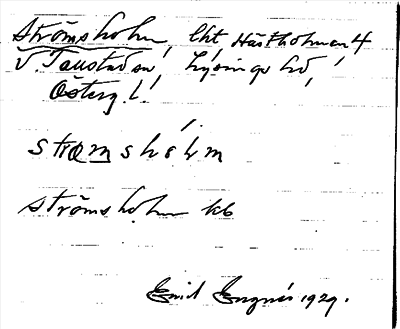 Strömsholm, lht, Hästholmen 4
V. Tollstad sn, Lysings hd,
Österg. l.
strǫmshólm
Strömsholm kb
Emil Engnér 1929.